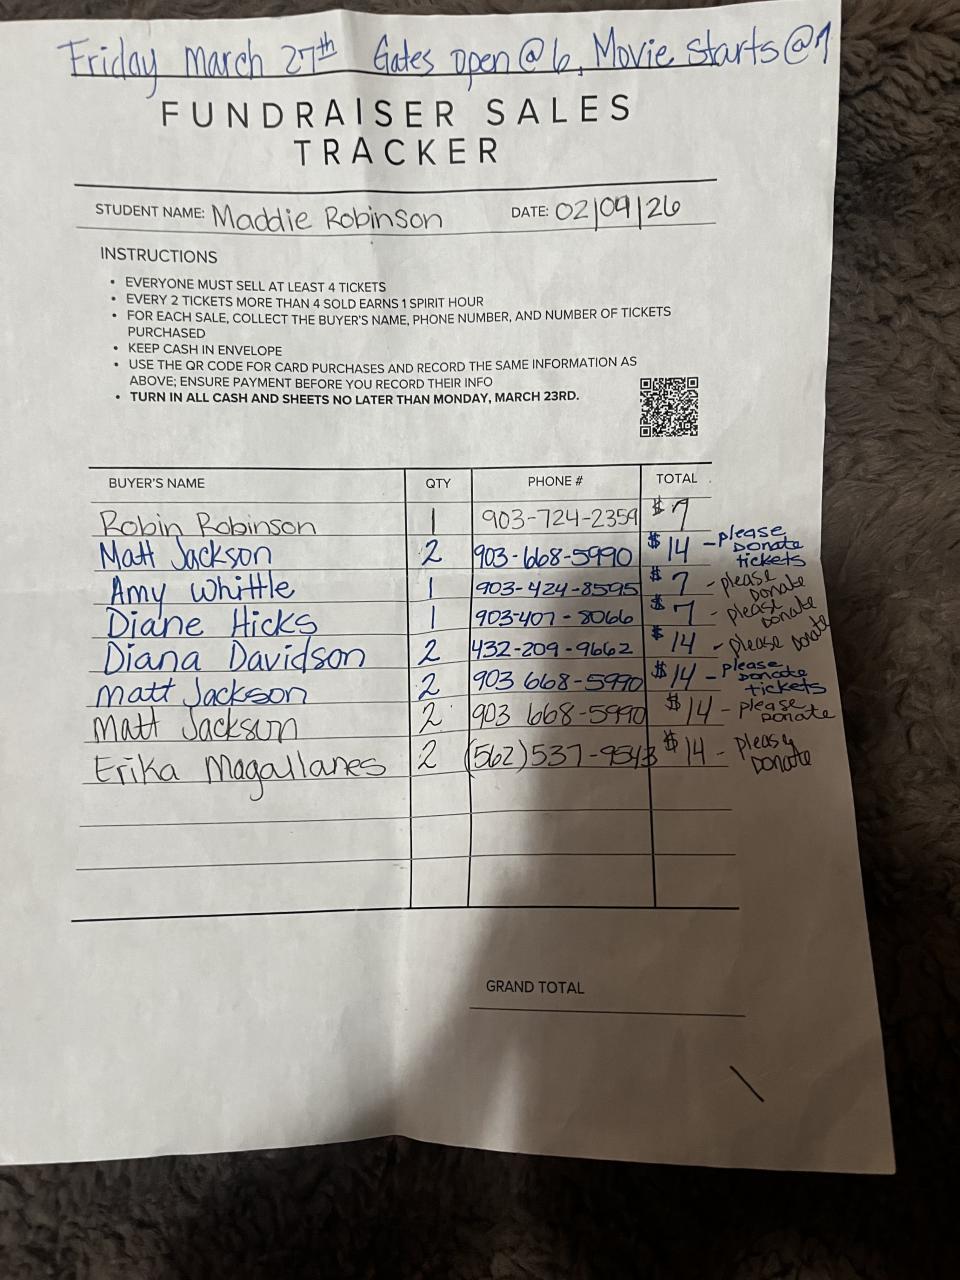 Friday March 27th Gates open @ 6, Movie starts @ 7
FUNDRAISER SALES
TRACKER
STUDENT NAME: Maddie Robinson DATE: 02/09/26
INSTRUCTIONS
• EVERYONE MUST SELL AT LEAST 4 TICKETS
• EVERY 2 TICKETS MORE THAN 4 SOLD EARNS 1 SPIRIT HOUR
• FOR EACH SALE, COLLECT THE BUYER'S NAME, PHONE NUMBER, AND NUMBER OF TICKETS
PURCHASED
• KEEP CASH IN ENVELOPE
• USE THE QR CODE FOR CARD PURCHASES AND RECORD THE SAME INFORMATION AS
ABOVE; ENSURE PAYMENT BEFORE YOU RECORD THEIR INFO
• TURN IN ALL CASH AND SHEETS NO LATER THAN MONDAY, MARCH 23RD.
BUYER'S NAME QTY PHONE # TOTAL
Robin Robinson 1 903-724-2359 $7
Matt Jackson 2 903-668-5990 $14 - please Donate tickets
Amy Whittle 1 903-424-8595 $7 - please Donate
Diane Hicks 1 903-407-8066 $7 - please Donate
Diana Davidson 2 432-209-9662 $14 - please Donate
Matt Jackson 2 903 668-5990 $14 - please Donate tickets
Matt Jackson 2 903 668-5990 $14 - please Donate
Erika Magallanes 2 (562)537-9543 $14 - please Donate
GRAND TOTAL